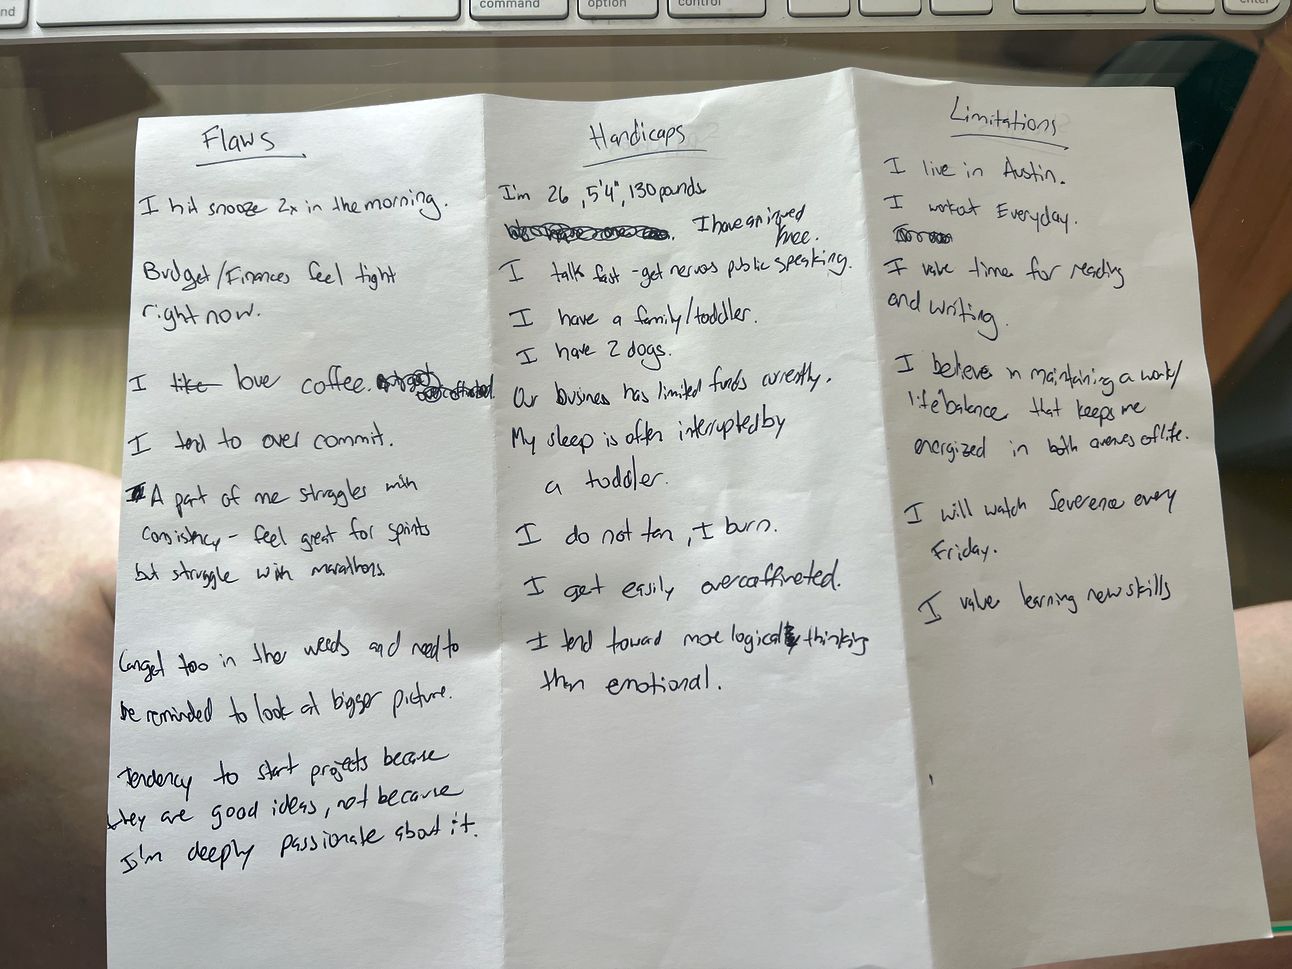 nd
command
option
control
enter
Flaws
I hit snooze 2x in the morning.
Budget/Finances feel tight
right now.
I like love coffee.
I tend to over commit.
A part of me struggles with
consistency - feel great for sprints
but struggle with marathons.
Can get too in the weeds and need to
be reminded to look at bigger picture.
Tendency to start projects because
they are good ideas, not because
I'm deeply passionate about it.
Handicaps
I'm 26, 5'4", 130 pounds
I have an injured
knee.
I talk fast - get nervous public speaking.
I have a family/toddler.
I have 2 dogs.
Our business has limited funds currently.
My sleep is often interrupted by
a toddler.
I do not tan, I burn.
I get easily overcaffineted.
I tend toward more logical thinking
than emotional.
Limitations
I live in Austin.
I workout Everyday.
I value time for reading
and writing.
I believe in maintaining a work/
life balance that keeps me
energized in both avenues of life.
I will watch Severence every
Friday.
I value learning new skills